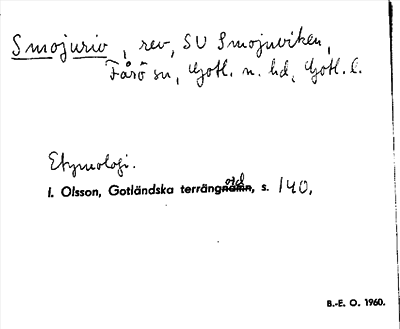 Smojuriv, rev, SV Smojuviken,
Fårö sn, Gotl. n. hd, Gotl. l.
Etymologi.
I. Olsson, Gotländska terrängord, s. 140.
B.-E. O. 1960.